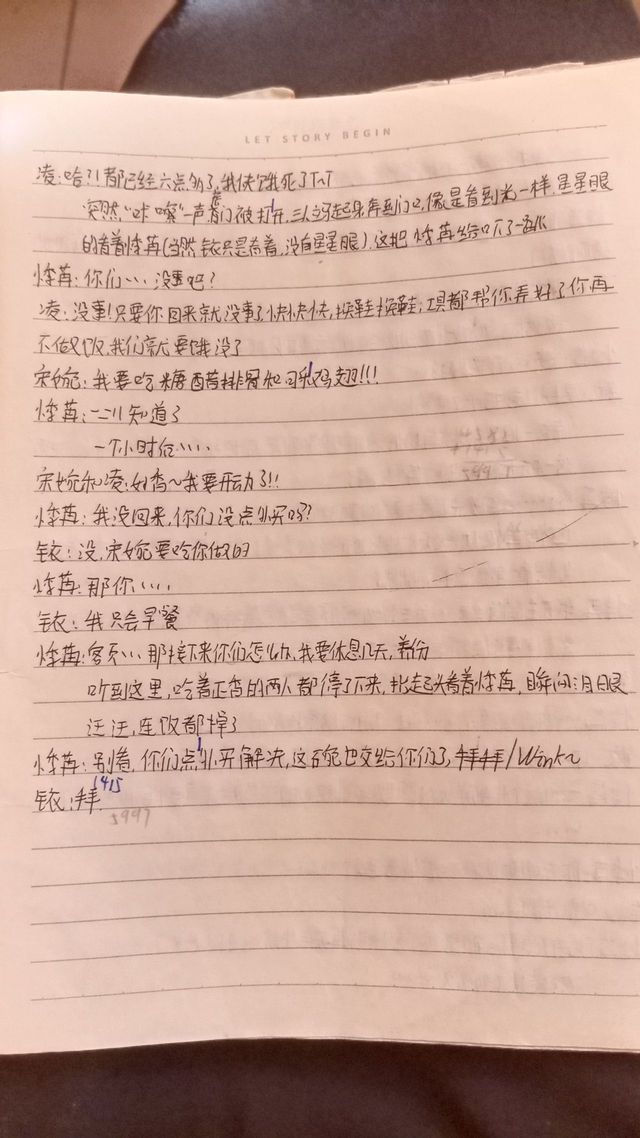 LET STORY BEGIN
凌:哈?!都已经六点多了,我快饿死了T^T
突然"咔嚓"一声,门被打开,三人立马起身奔到门口,像是看到光一样,星星眼
的看着李苒(当然铱只是看着,没有星星眼),这把李苒给吓了一跳
李苒:你们……没事吧?
凌:没事!只要你回来就没事了快快快,换鞋换鞋,工具都帮你弄好了你再
不做饭,我们就要饿没了
宋婉:我要吃糖醋排骨和可乐鸡翅!!!
李苒:知道了
一个小时后……
宋婉和凌:好香~我要开动了!!
李苒:我没回来,你们没点外卖吗?
铱:没,宋婉要吃你做的
李苒:那你……
铱:我只会早餐
李苒:害……那接下来你们怎么办,我要休息几天,养伤
听到这里,吃着正香的两人都停了下来,抬起头看着李苒,瞬间泪眼
汪汪,连饭都掉了
李苒:别看,你们点外卖解决,这百宛也交给你们了,拜拜/Wink~
铱:拜
1415
5997